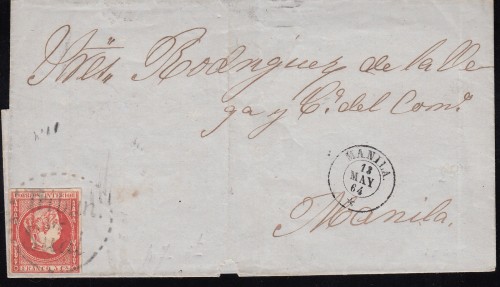 Sres Rodriguez de la Ve
ga y Ca. del Come.
MANILA
13
MAY
64
Manila.
FRANCO